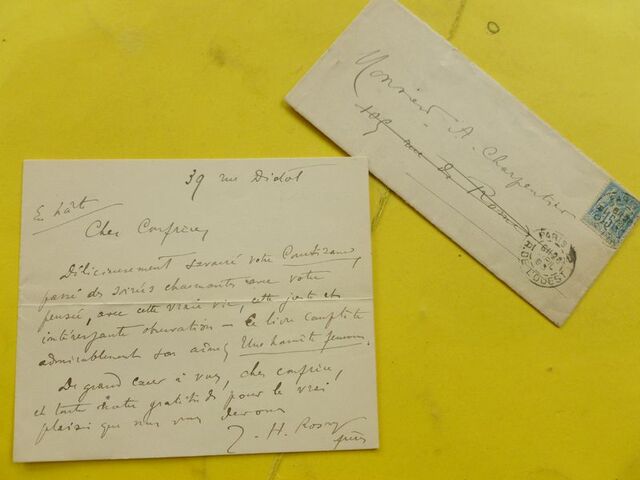 39 rue Didot
En hâte
Cher Confrère,
Délicieusement savouré votre
passé des soirées charmantes avec votre
pensée, avec cette vraie vie, cette juste et
intéressante observation – Ce livre complète
admirablement son aîné, Une honnête femme.
De grand cœur à vous, cher confrère,
et toute notre gratitude pour le vrai
plaisir que nous vous devons
J. H. Rosny
Monsieur A. Charpentier
rue de
PARIS
R. DE L'OUEST